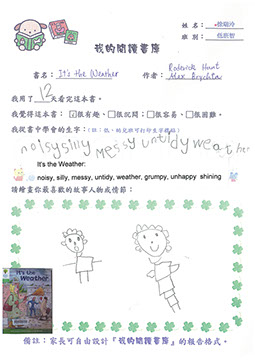 姓名：徐曉冷
班別：低班智
我的閱讀書簿
書名：It's the Weather 作者：Roderick Hunt
Alex Brychta
我用了 12 天看完這本書。
我覺得這本書：☑很有趣、☐很沉悶、☐很容易、☐很困難。
我從書中學會的生字：
noisy silly messy untidy weather
It's the Weather:
noisy, silly, messy, untidy, weather, grumpy, unhappy shining
請繪畫你最喜歡的故事人物或情節：
It's the
Weather
備註：家長可自由設計『我的閱讀書簿』的報告格式。